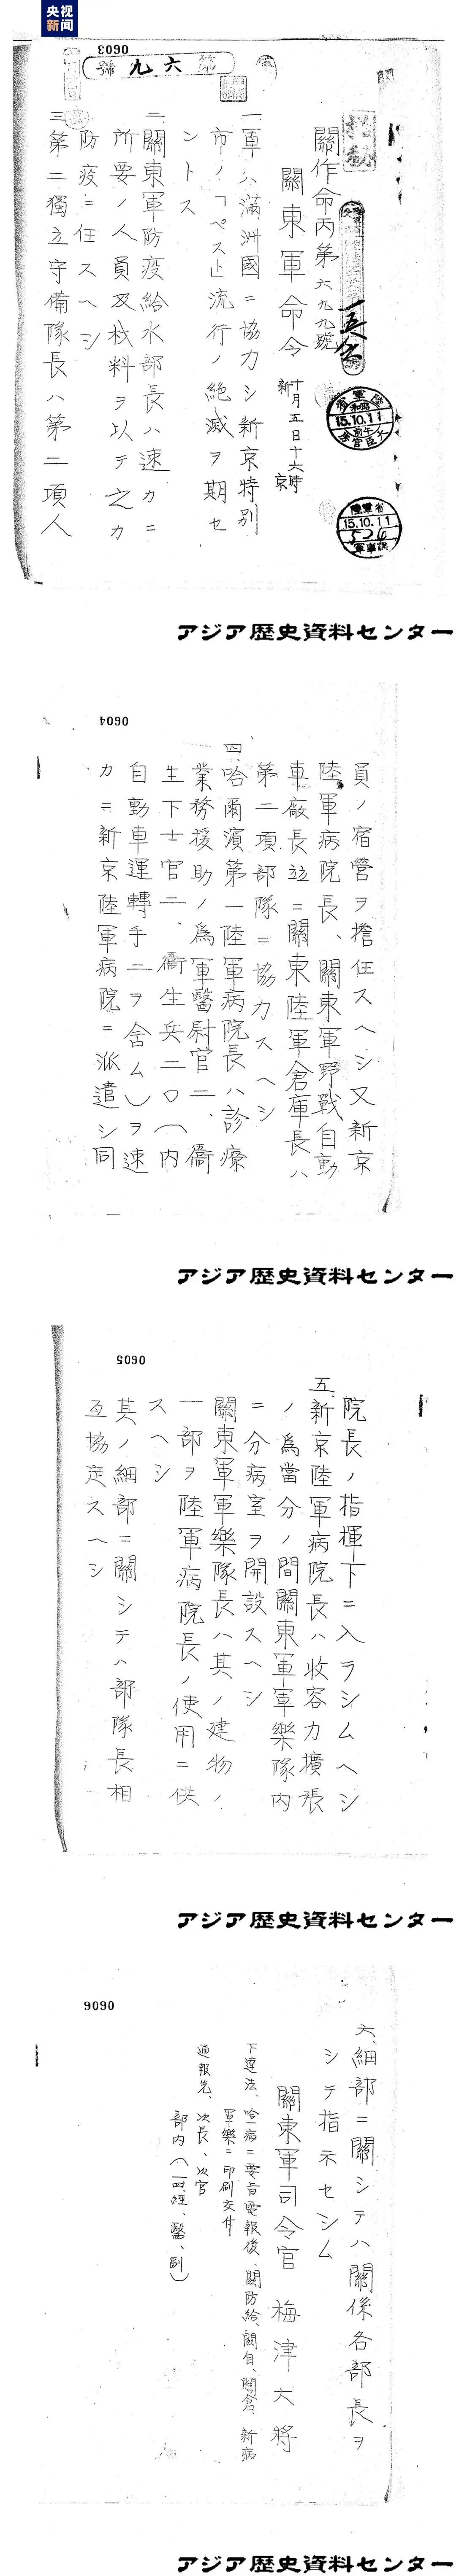 央视
新闻
0603
第六九號
關作命丙第六九九號
關東軍命令 十月五日十六時
新京
一、軍ハ滿洲國ニ協力シ新京特別
市ノ「ペスト」流行ノ絶滅ヲ期セ
ントス
二、關東軍防疫給水部長ハ速カニ
所要ノ人員及材料ヲ以テ之カ
防疫ニ任スヘシ
三、第二獨立守備隊長ハ第二項人
陸軍省
15.10.11
大臣官房
陸軍省
15.10.11
軍事課
アジア歴史資料センター
0604
員ノ宿營ヲ擔任スヘシ又新京
陸軍病院長、關東軍野戰自動
車廠長竝ニ關東陸軍倉庫長ハ
第二項部隊ニ協力スヘシ
四、哈爾濱第一陸軍病院長ハ診療
業務援助ノ爲軍醫尉官二、衞
生下士官二、衞生兵二〇(内
自動車運轉手二ヲ含ム)ヲ速
カニ新京陸軍病院ニ派遣シ同
アジア歴史資料センター
0605
院長ノ指揮下ニ入ラシムヘシ
五、新京陸軍病院長ハ收容力擴張
ノ爲當分ノ間關東軍軍樂隊内
ニ分病室ヲ開設スヘシ
關東軍軍樂隊長ハ其ノ建物ノ
一部ヲ陸軍病院長ノ使用ニ供
スヘシ
其ノ細部ニ關シテハ部隊長相
互協定スヘシ
アジア歴史資料センター
0606
六、細部ニ關シテハ關係各部長ヲ
シテ指示セシム
關東軍司令官 梅津大將
下達法、哈一病ニ要旨電報後、關防給、關自、關倉、新病
軍樂ニ印刷交付
通報先、次長、次官
部内(一、四、經、醫、副)
アジア歴史資料センター